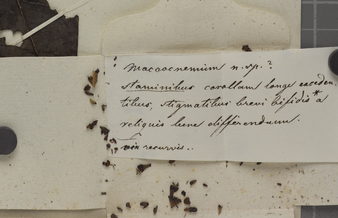 Macrocnemium n. sp. ?
staminibus corollam longe exceden
tibus, stigmatibus brevi bifidis * a
reliquis bene differendum.
recurvis..